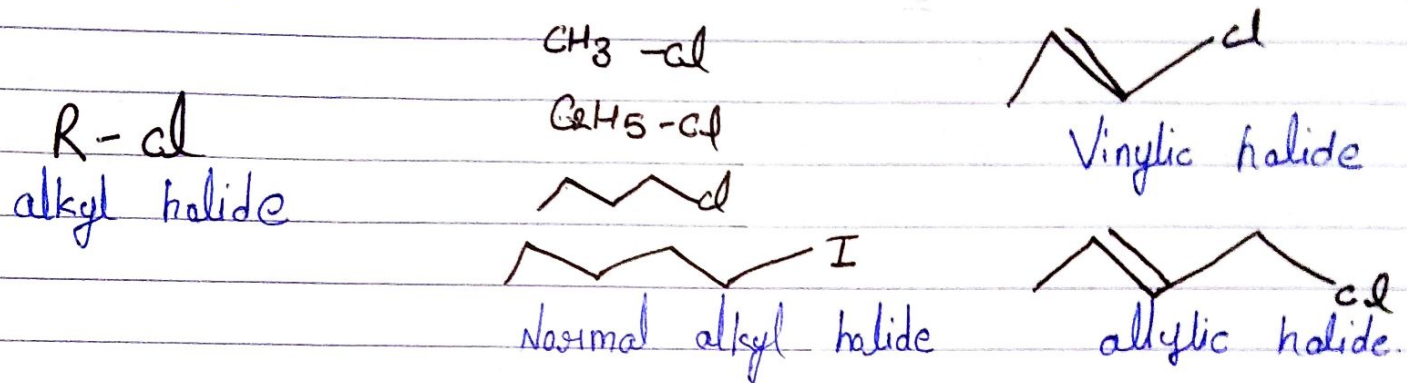 R - Cl
alkyl halide
CH3 - Cl
C2H5 - Cl
Cl
I
Normal alkyl halide
Cl
Vinylic halide
Cl
allylic halide.